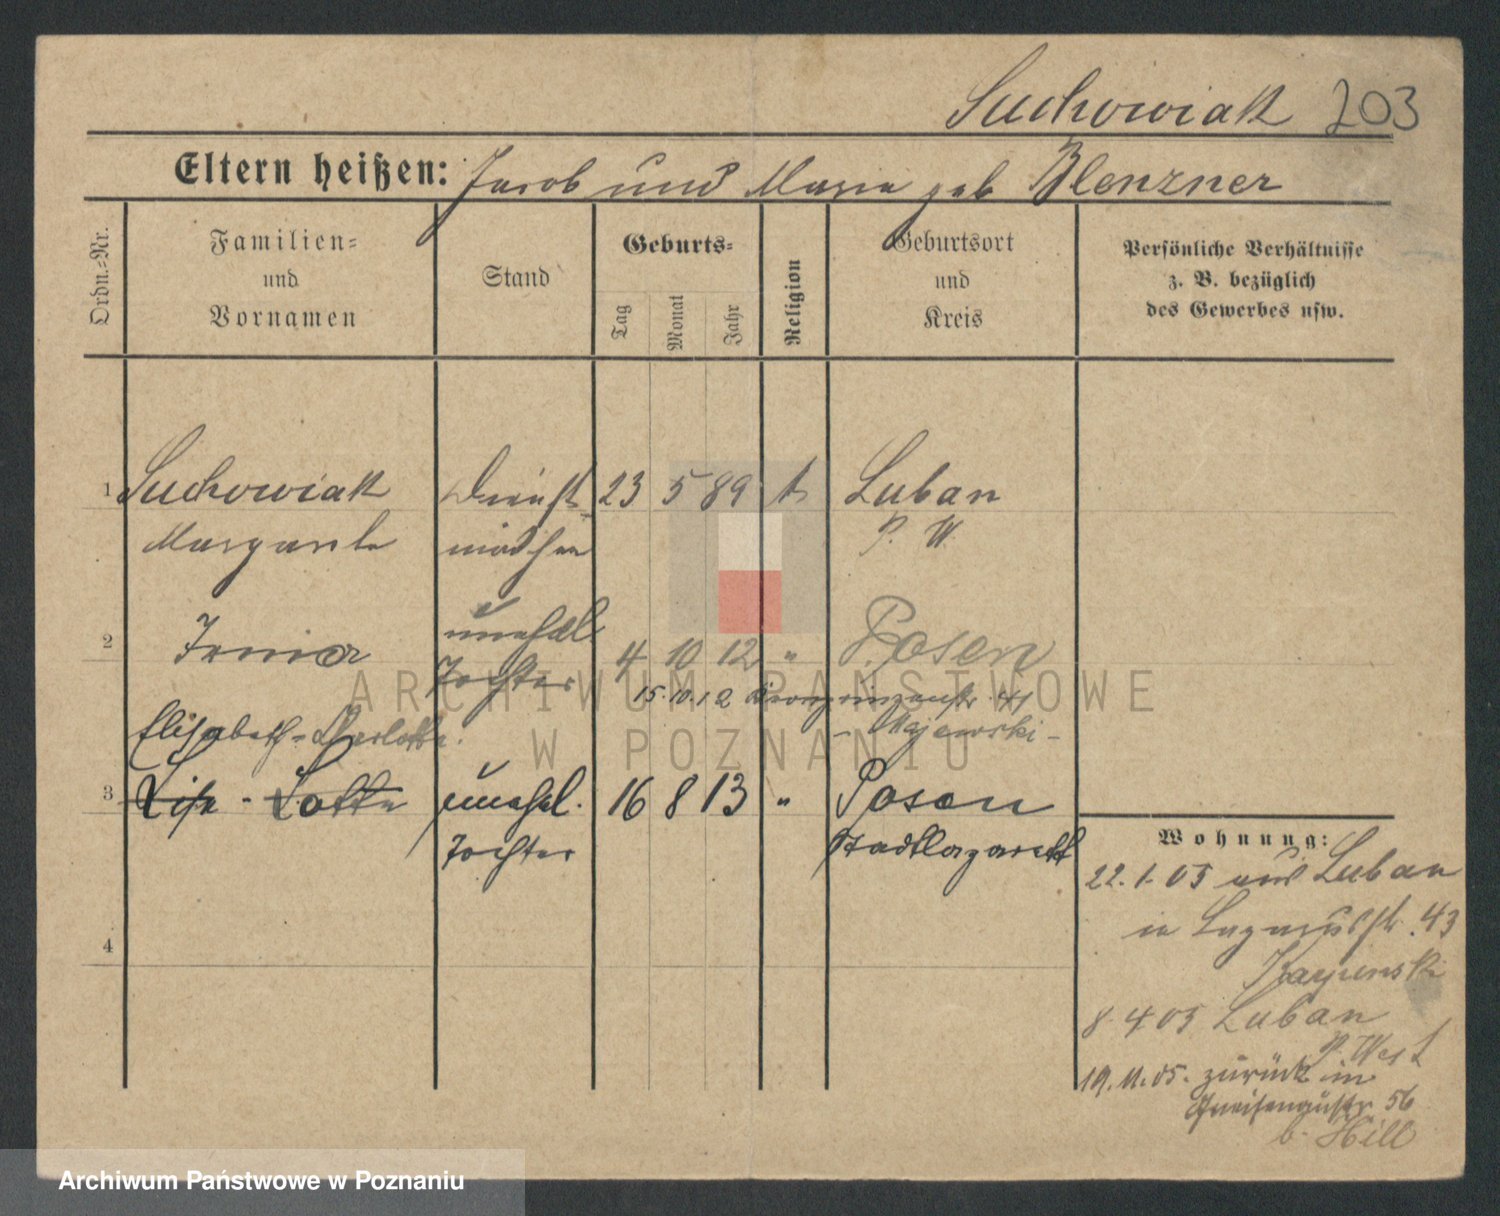 Suchowiak 203
Eltern heißen: Jacob und Maria geb Blenzner
Ordn.=Nr.
Familien=
und
Vornamen
Stand
Geburts=
Tag
Monat
Jahr
Religion
Geburtsort
und
Kreis
Persönliche Verhältnisse
z. B. bezüglich
des Gewerbes usw.
1 Suchowiak Dienst- 23 5 89 k Luban
Margarete mädchen P. W.
2 Irmia unehel. 4 10 12 " Posen
Tochter
15.10.12 Kronprinzenstr. 41
- Majewski -
Elisabeth-Charlotte.
3 Lise - Lotte unehel. 16 8 13 " Posen
Tochter Stadtlazarett
4
Wohnung:
22.1.05 aus Luban
in Lazarusstr. 43
8.4 05 Luban
P. West
19.11.05. zurück in
Gneisenaustr 56
b. Hill
ARCHIWUM PAŃSTWOWE
W POZNANIU
Archiwum Państwowe w Poznaniu